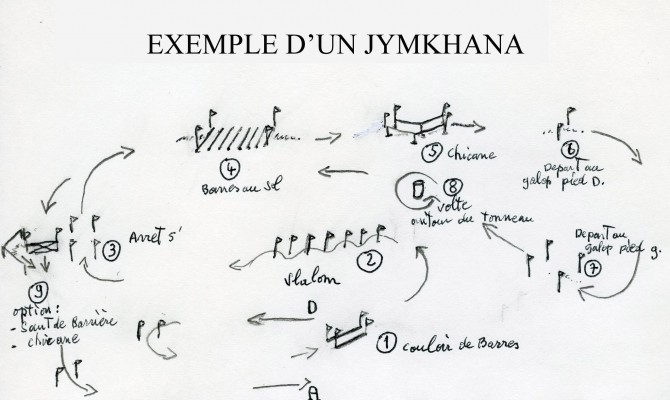 EXEMPLE D'UN JYMKHANA
4
Barres au sol
5 chicane
6
Depart au
galop pied D.
8
volte
autour du tonneau
3 Arret 5'
Slalom 2
Depart au
galop pied g.
7
9
option :
- Saut de Barrière
- chicane
D
1 couloir de Barres
A